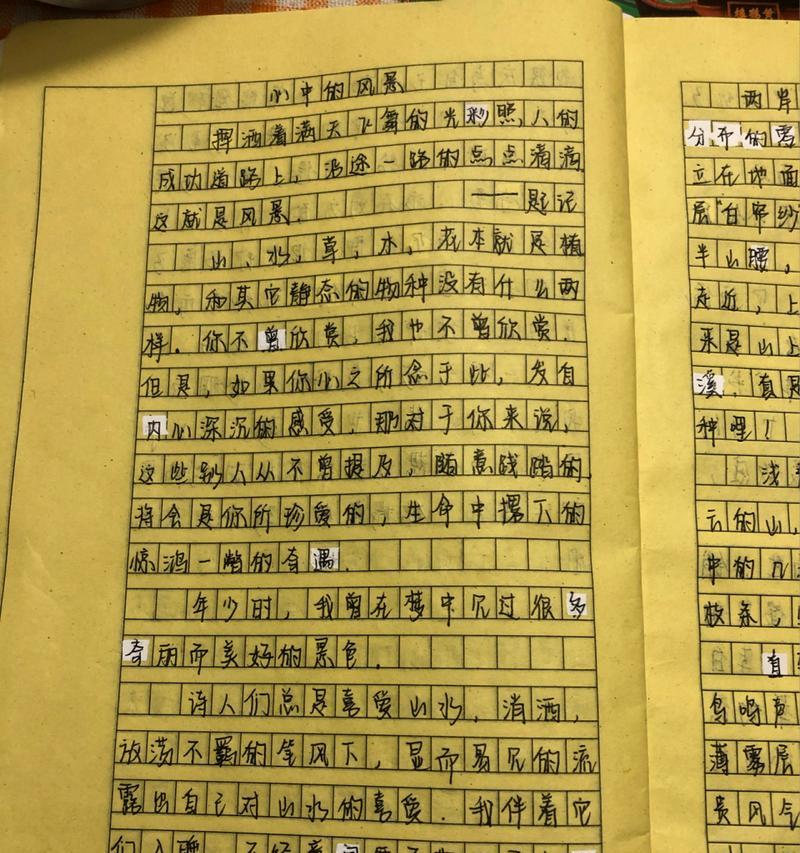 心中的风景
挥洒着满天飞舞的光彩照人的
成功道路上，沿途一路的点点滴滴
这就是风景. ——题记
山，水，草，木，花本就是植
物，和其它静态的物种没有什么两
样。你不曾欣赏，我也不曾欣赏.
但是，如果你心之所念于此，发自
内心深沉的感受，那对于你来说，
这些别人从不曾提及，随意践踏的
将会是你所珍爱的，生命中撂下的
惊鸿一瞥的奇遇.
年少时，我曾在梦中见过很多
奇丽而美好的景色.
诗人们总是喜爱山水，消洒，
放荡不羁的笔风下，显而易见的流
露出自己对山水的喜爱. 我伴着它
们入睡
两岸
分开的雾
立在地面
层"白帘纱
半山腰，
走近，上
来是山上
溪. 真是
种哩！
浅
云的山，
中的几
枝条，
直
鸟鸣
薄雾层
贵风气